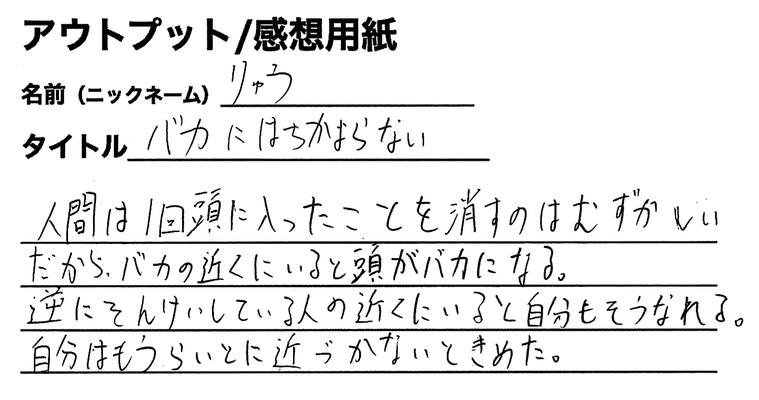 アウトプット/感想用紙
名前（ニックネーム） りゅう
タイトル バカにはちかよらない
人間は1回頭に入ったことを消すのはむずかしい
だから、バカの近くにいると頭がバカになる。
逆にそんけいしている人の近くにいると自分もそうなれる。
自分はもうらいとに近づかないときめた。